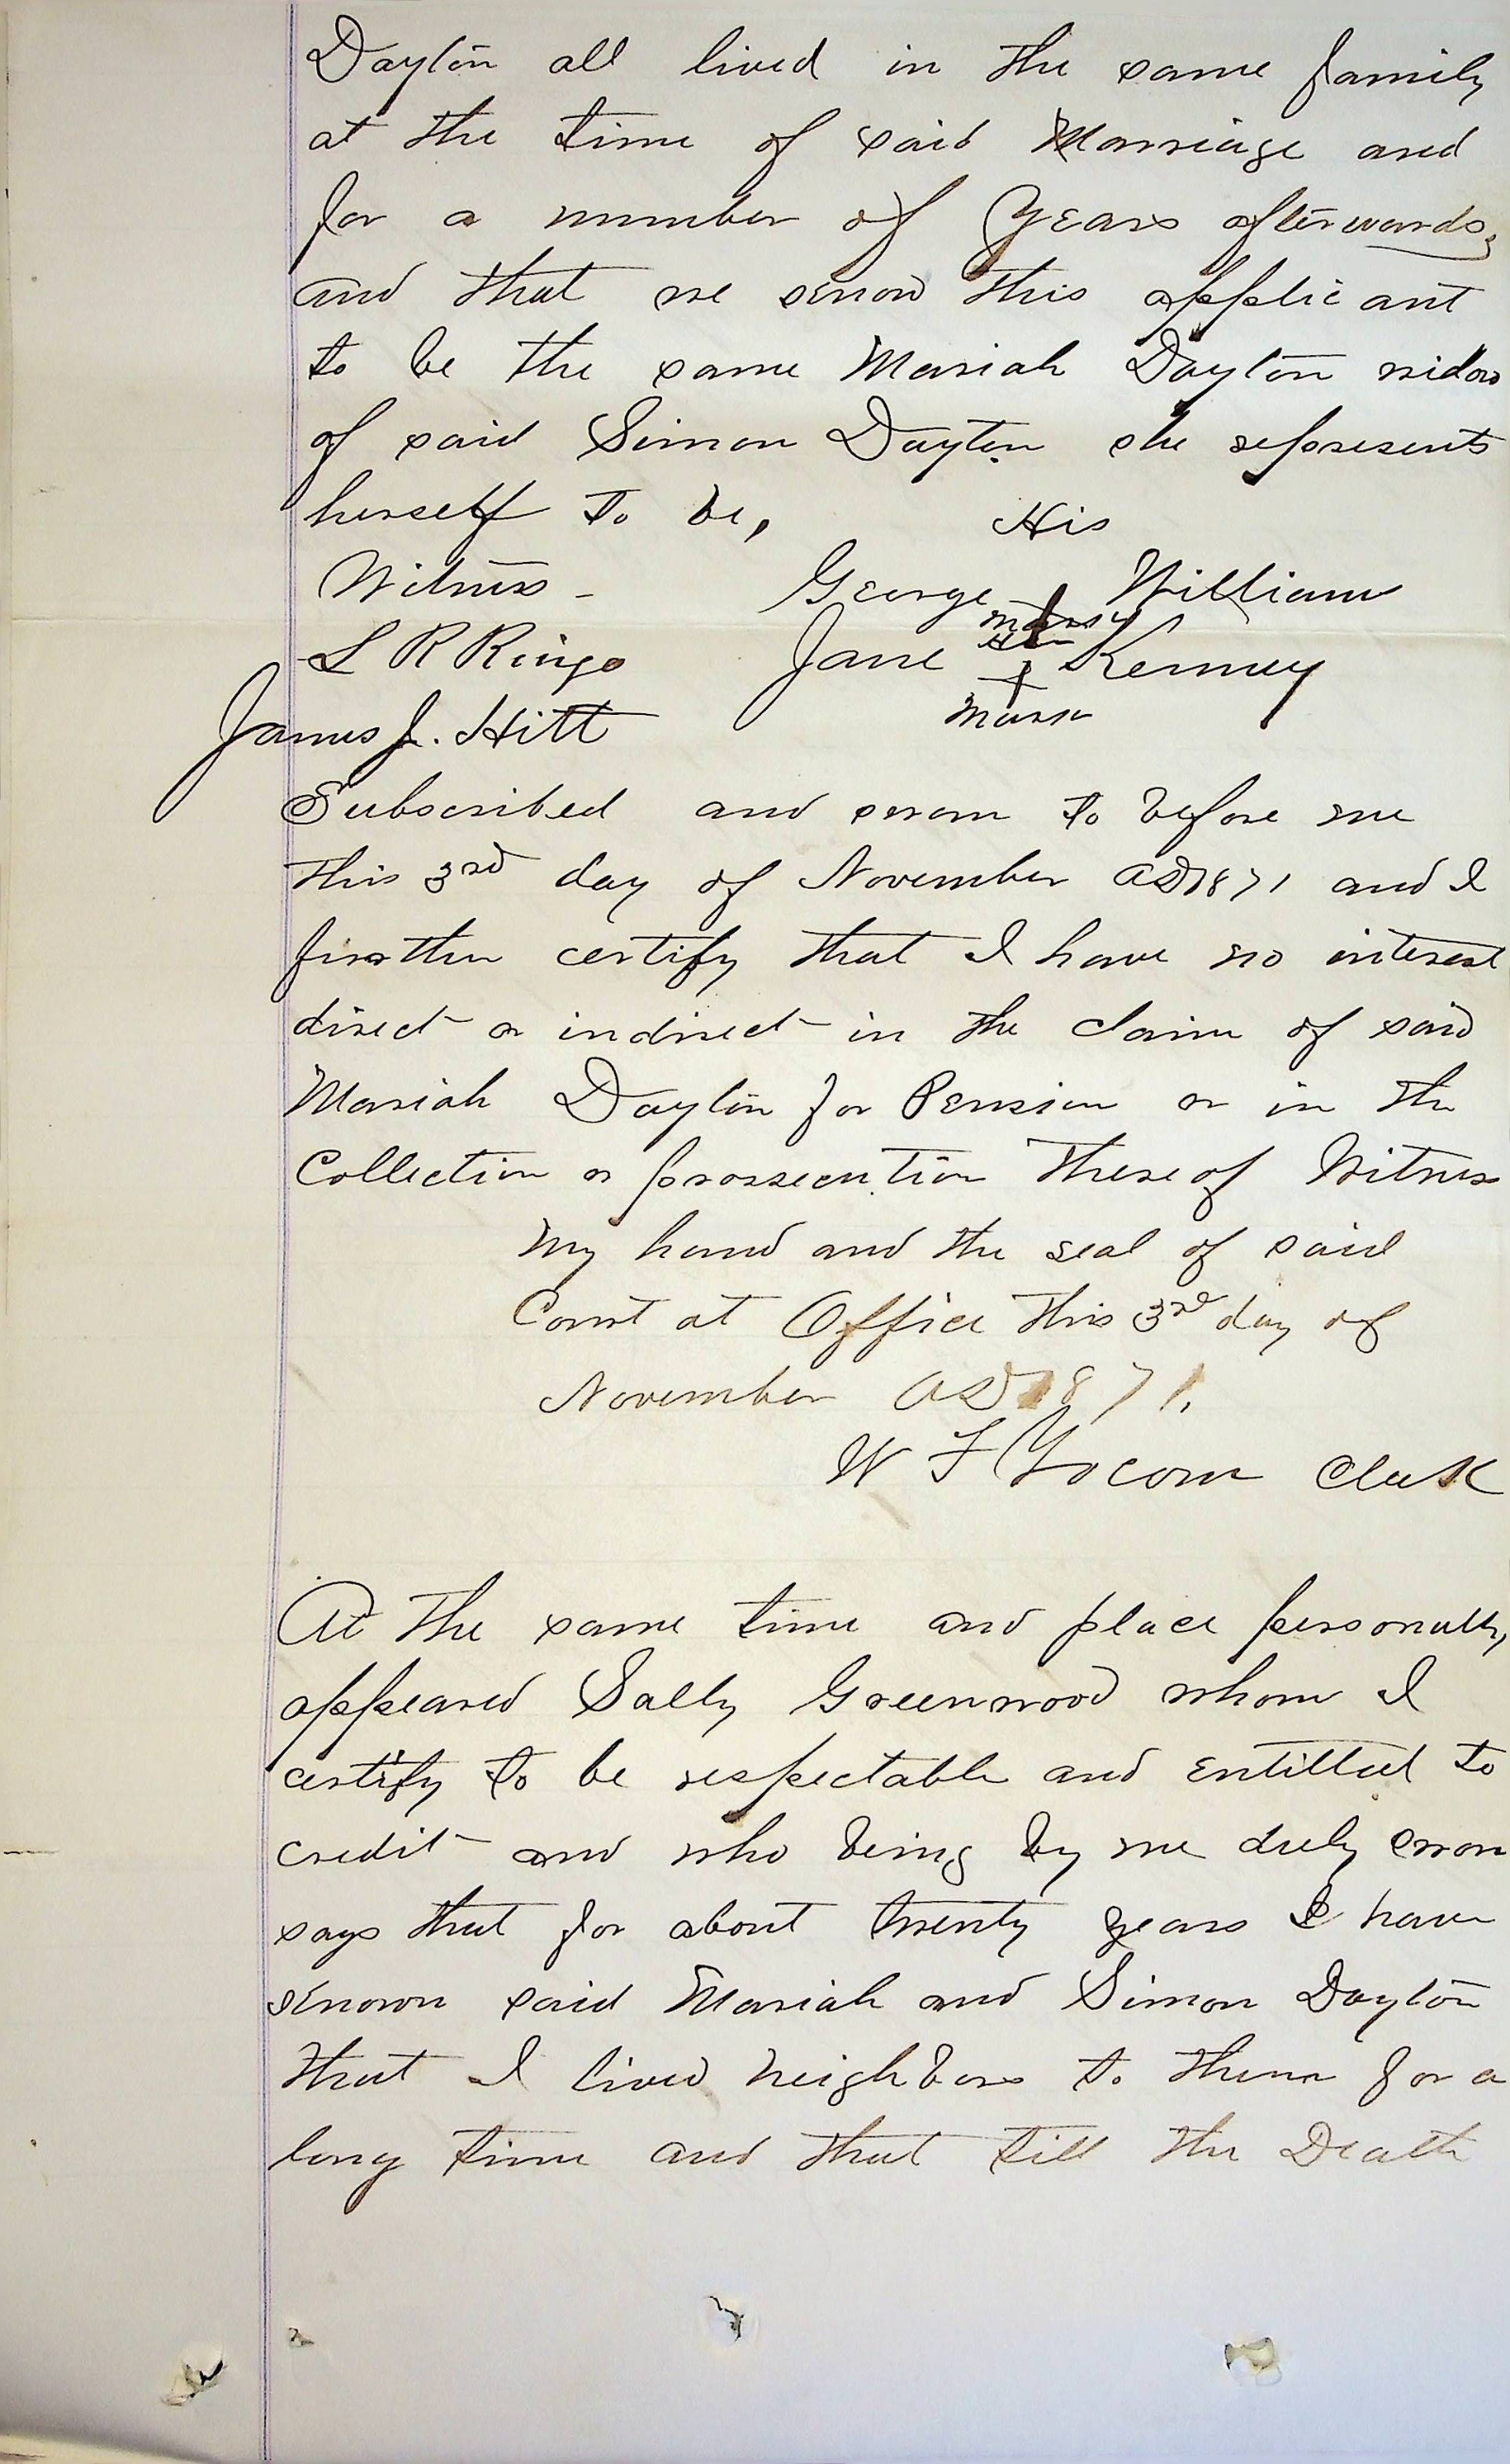 Dayton all lived in the same family
at the time of said Marriage and
for a number of years afterwards,
and that we know this applicant
to be the same Mariah Dayton widow
of said Simon Dayton she represents
herself to be,
His
Witness - George + William
mark
L R Ringo Jane Her + Kenney
James J. Hitt mark
Subscribed and sworn to before me
this 3rd day of November AD 1871 and I
further certify that I have no interest
direct or indirect in the claim of said
Mariah Dayton for Pension or in the
Collection or prossecution thereof Witness
my hand and the seal of said
Court at Office this 3rd day of
November AD 1871.
W F Yocom Clerk
At the same time and place personally
appeared Sally Greenwood whom I
certify to be respectable and entitled to
credit and who being by me duly sworn
says that for about twenty years I have
known said Mariah and Simon Dayton
that I lived neighbors to them for a
long time and that till the Death